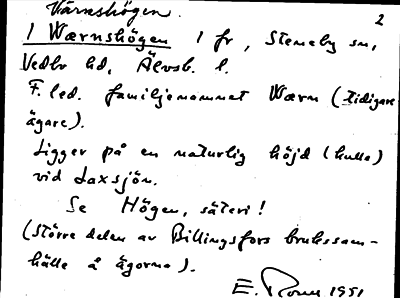 Värnshögen.
2
1 Wærnshögen 1 fr, Steneby sn,
Vedbo hd, Älvsb. l.
F. led. familjenamnet Wærn (tidigare
ägare).
Ligger på en naturlig höjd (kulle)
vid Laxsjön.
Se Högen, säteri!
(Större delen av Billingsfors brukssam-
hälle å ägorna).
E. 1951